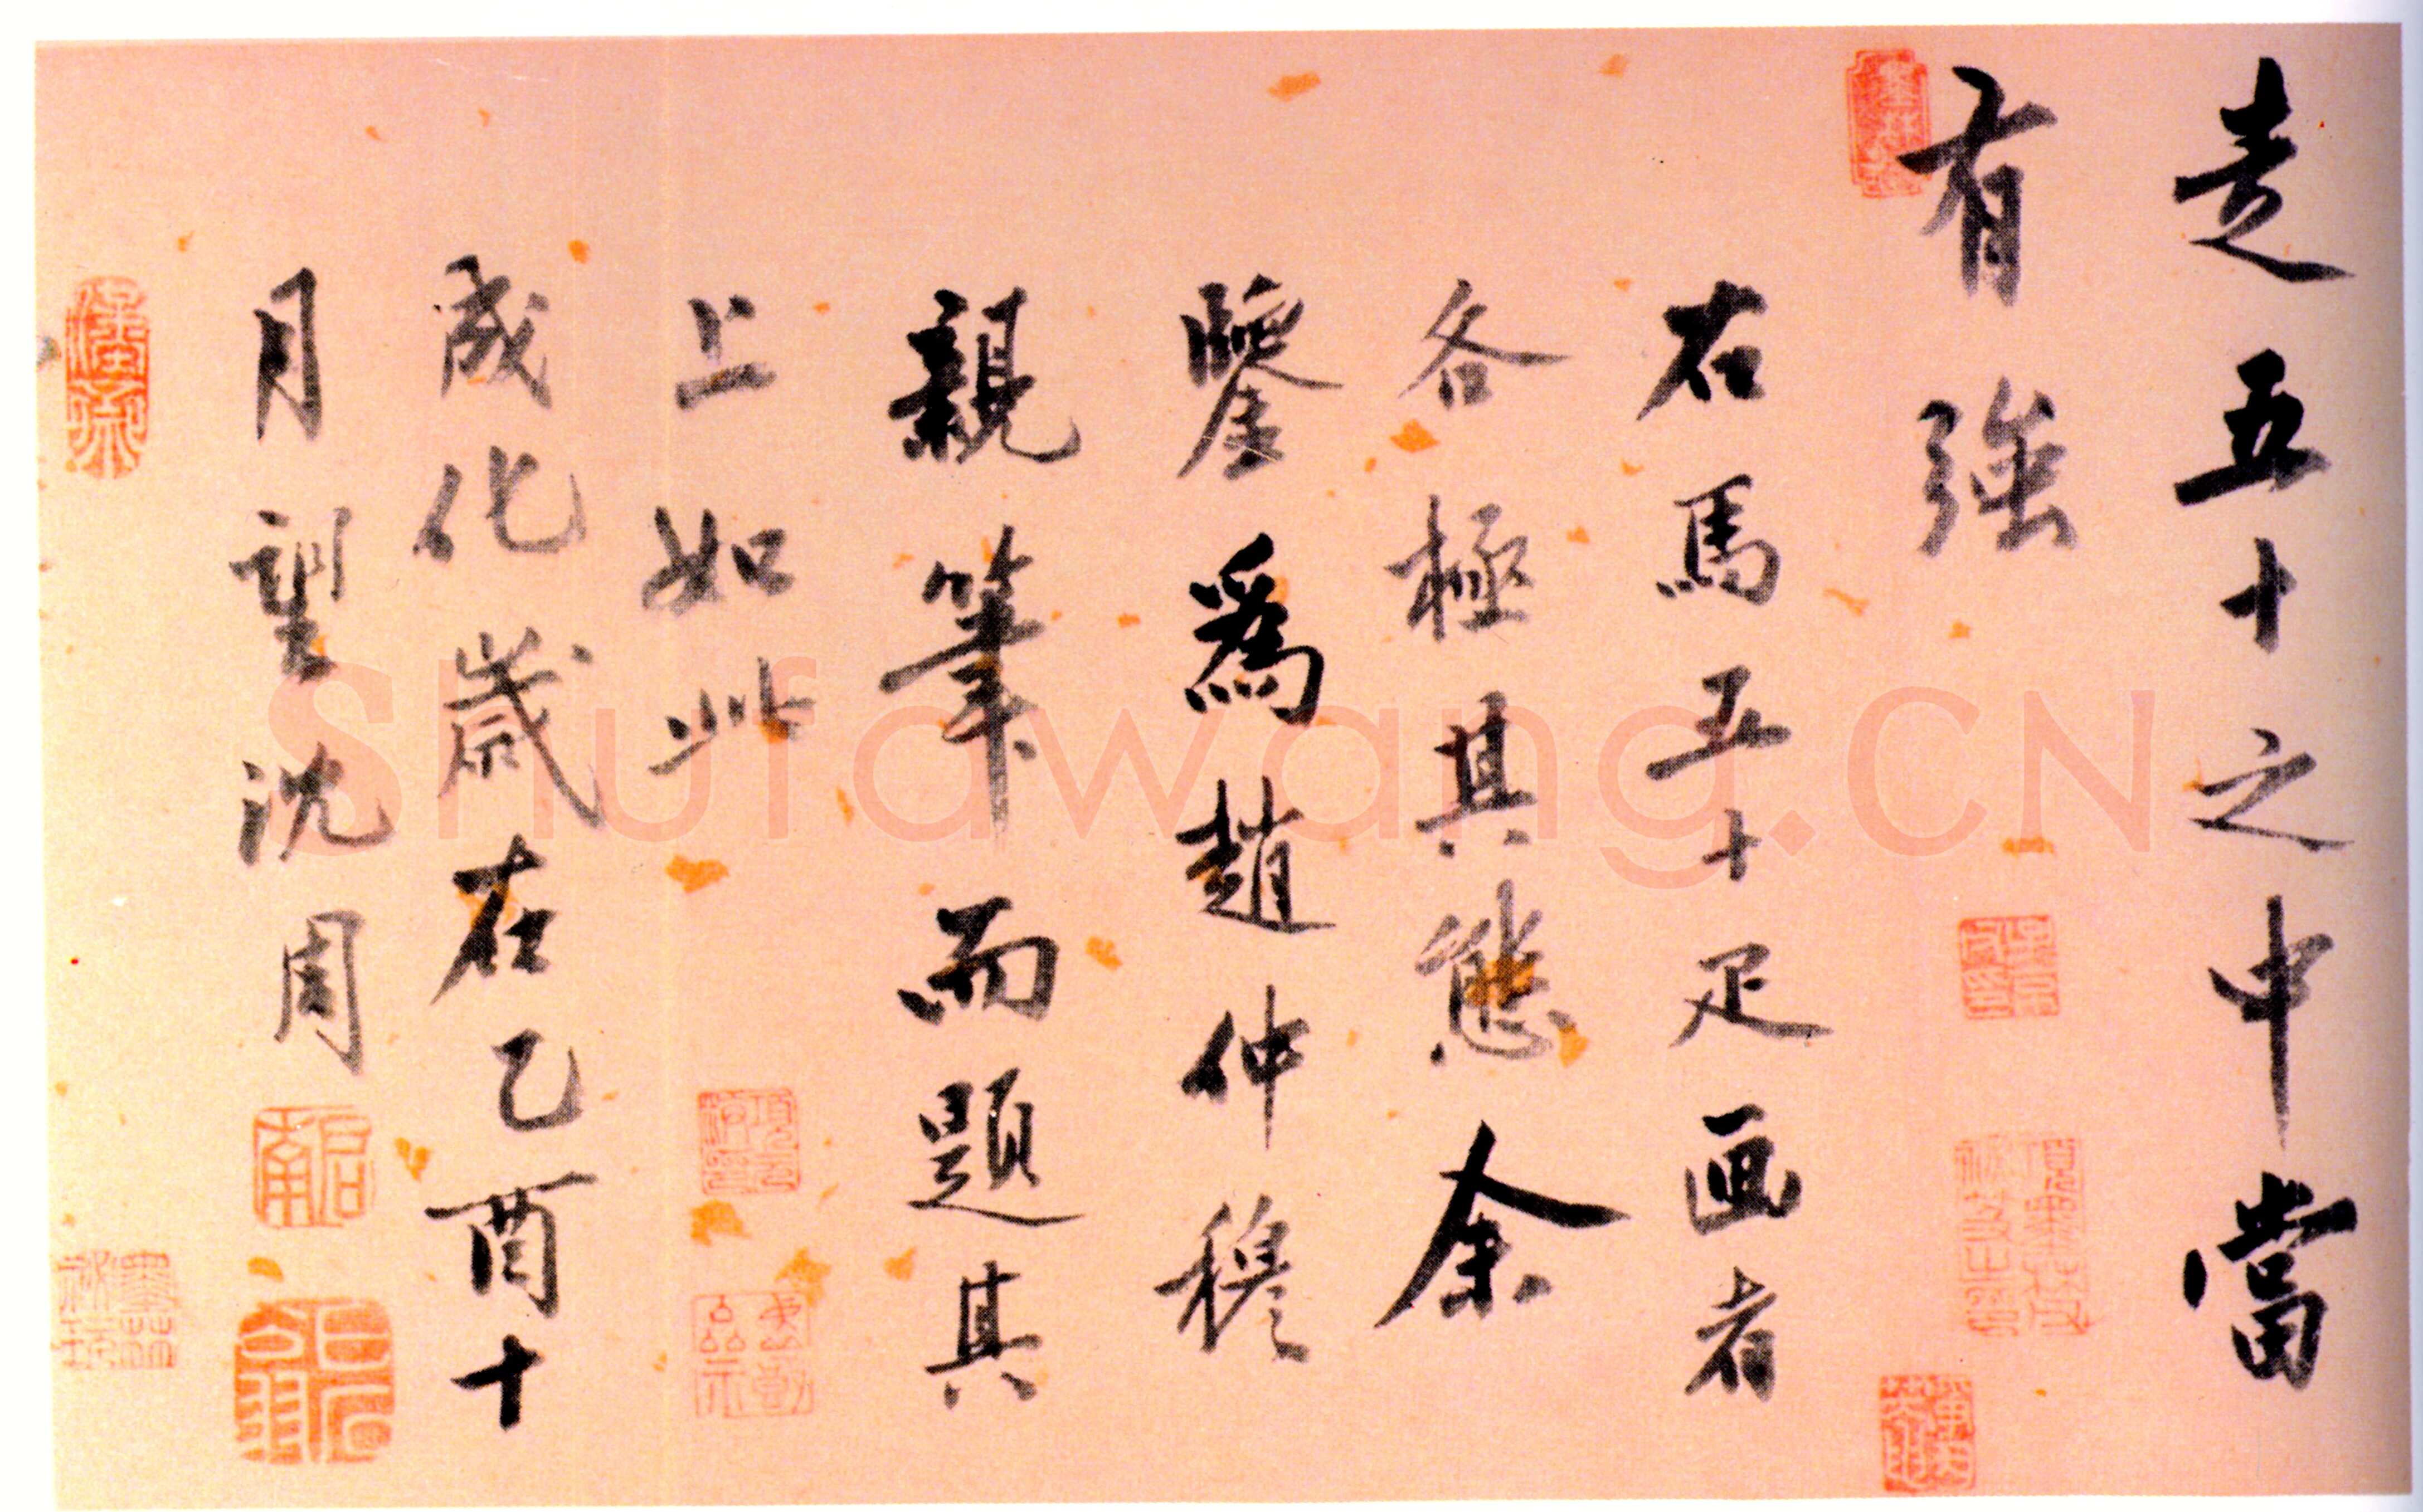 走五十之中當
有強
右馬五十疋画者
各極其態余
鑒爲趙仲穆
親筆而題其
上如此
成化歲在乙酉十
月望沈周
Shufawang.CN